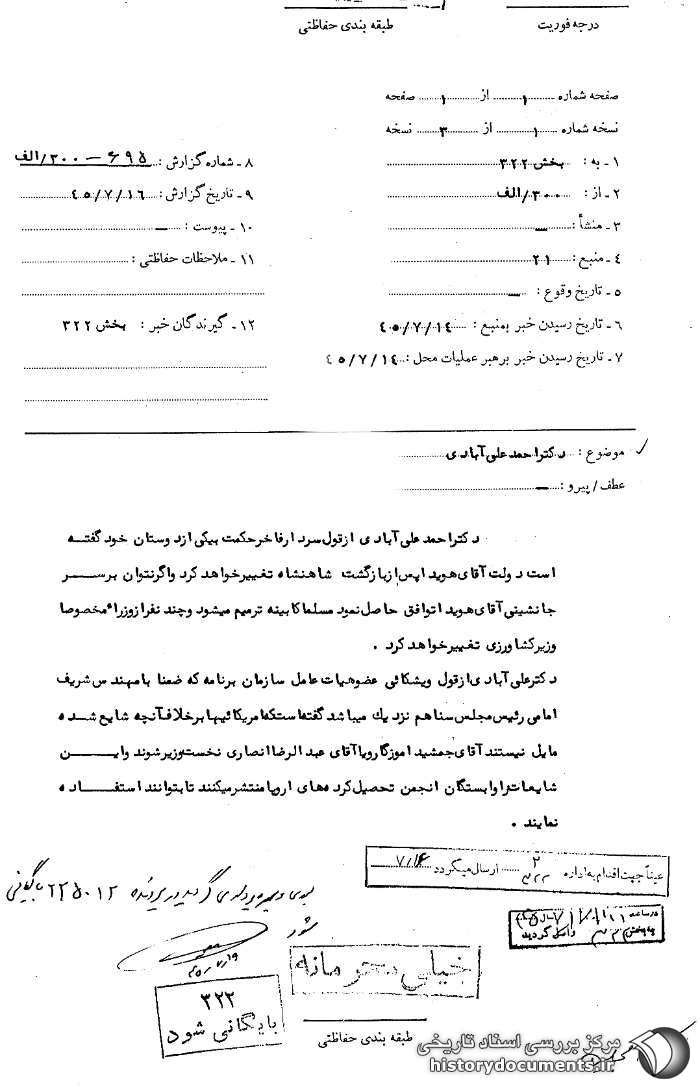 درجه فوریت
طبقه بندی حفاظتی
صفحه شماره ۱ از ۱ صفحه
نسخه شماره ۱ از ۳ نسخه
۱ - به : بخش ۳۲۲
۲ - از : ۳۰۰/الف
۳ - منشأ : —
۴ - منبع : ۲۱
۵ - تاریخ وقوع : —
۶ - تاریخ رسیدن خبر بمنبع : ۴۵/۷/۱۴
۷ - تاریخ رسیدن خبر برهبر عملیات محل : ۴۵/۷/۱۴
۸ - شماره گزارش : ۶۹۵ – ۳۰۰/الف
۹ - تاریخ گزارش : ۴۵/۷/۱۶
۱۰ - پیوست : —
۱۱ - ملاحظات حفاظتی :
۱۲ - گیرندگان خبر : بخش ۳۲۲
موضوع : دکتر احمد علی آبادی
عطف / پیرو : —
دکتر احمد علی آبادی از قول سردار فاخر حکمت بیکی از دوستان خود گفته
است دولت آقای هویدا پس از بازگشت شاهنشاه تغییر خواهد کرد واگر نتوان بر سر
جانشینی آقای هویدا توافق حاصل نمود مسلما کابینه ترمیم میشود و چند نفر از وزراء مخصوصا
وزیر کشاورزی تغییر خواهد کرد .
دکتر علی آبادی از قول ویشکائی عضو هیات عامل سازمان برنامه که ضمنا با مهندس شریف
امامی رئیس مجلس سنا هم نزدیك میباشد گفته است که امریکائیها برخلاف آنچه شایع شده
مایل نیستند آقای جمشید آموزگار و یا آقای عبدالرضا انصاری نخست وزیر شوند و این
شایعات را وابستگان انجمن تحصیل کرده های اروپا منتشر میکنند تا بتوانند استفاده
نمایند .
عیناً جهت اقدام به اداره ۲ ۳۲۲ ارسال میگردد ۷/۱۶
گردید در پرونده ۲۲۵۰۱۲ بایگانی
شود
۴۵/۷/۱۹
در ساعت
به بخش ۳۲۲ واصل گردید
خیلی محرمانه
۳۲۲
بایگانی شود
طبقه بندی حفاظتی
مرکز بررسی اسناد تاریخی
historydocuments.ir